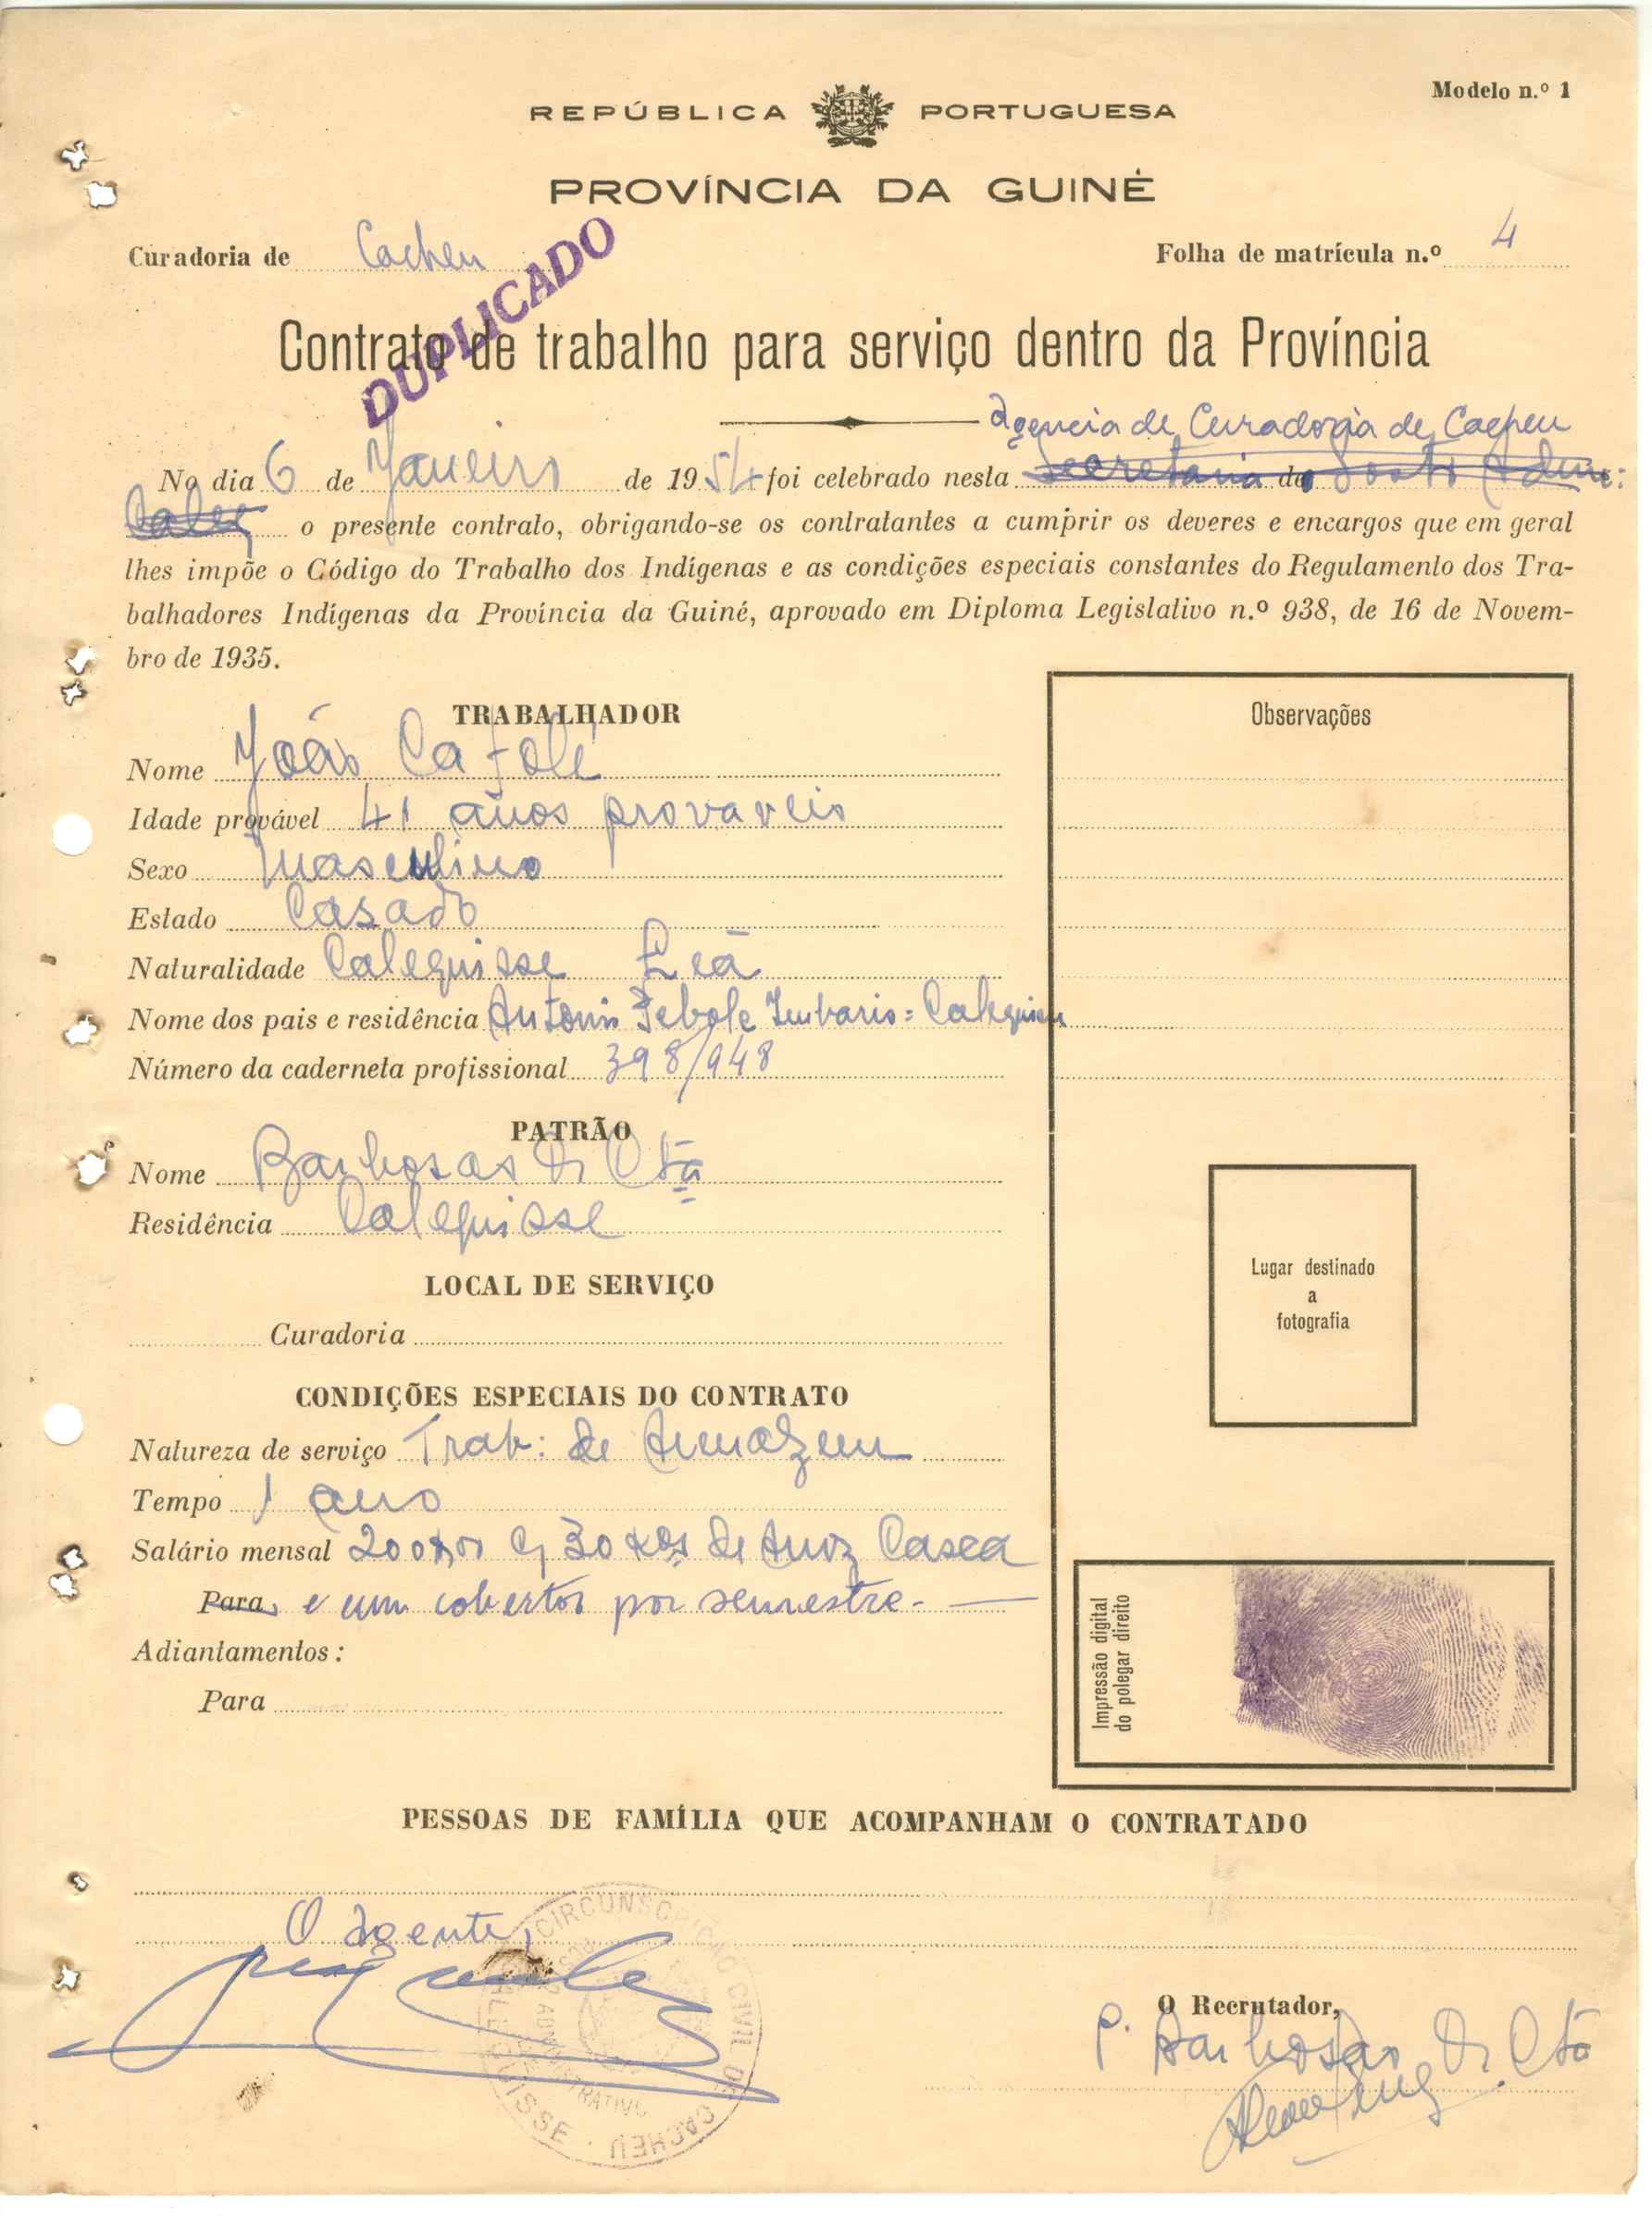 Modelo n.º 1
REPÚBLICA PORTUGUESA
PROVÍNCIA DA GUINÉ
Curadoria de Cacheu
Folha de matrícula n.º 4
DUPLICADO
Contrato de trabalho para serviço dentro da Província
Agencia de Curadoria de Cacheu
No dia 6 de Janeiro de 1954 foi celebrado nesta secretaria do Posto Adm:
o presente contrato, obrigando-se os contratantes a cumprir os deveres e encargos que em geral
lhes impõe o Código do Trabalho dos Indígenas e as condições especiais constantes do Regulamento dos Tra-
balhadores Indígenas da Província da Guiné, aprovado em Diploma Legislativo n.º 938, de 16 de Novem-
bro de 1935.
TRABALHADOR
Nome João Cafolé
Idade provável 41 anos provaveis
Sexo Masculino
Estado Casado
Naturalidade Calequisse
Nome dos pais e residência Antonio = Calequisse
Número da caderneta profissional 398/948
PATRÃO
Nome Barbosas & Ctª
Residência Calequisse
LOCAL DE SERVIÇO
Curadoria
CONDIÇÕES ESPECIAIS DO CONTRATO
Natureza de serviço Trab: de Armazem
Tempo 1 ano
Salário mensal 200$00 c/ 30 kgs de Arroz Casca
Para e um cobertor por semestre.
Adiantamentos:
Para
Observações
Lugar destinado
a
fotografia
Impressão digital
do polegar direito
PESSOAS DE FAMÍLIA QUE ACOMPANHAM O CONTRATADO
O Agente,
CIRCUNSCRIÇÃO CIVIL DE CACHEU
POSTO ADMINISTRATIVO
CALEQUISSE
O Recrutador,
P. Barbosas & Ctª